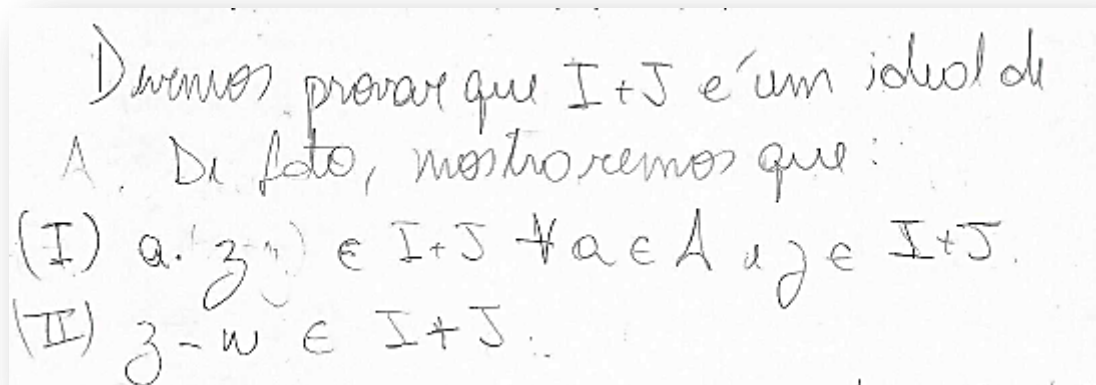 Devemos provar que I+J é um ideal de
A. De fato, mostraremos que:
(I) a. z ∈ I+J ∀ a ∈ A e z ∈ I+J.
(II) z - w ∈ I + J.